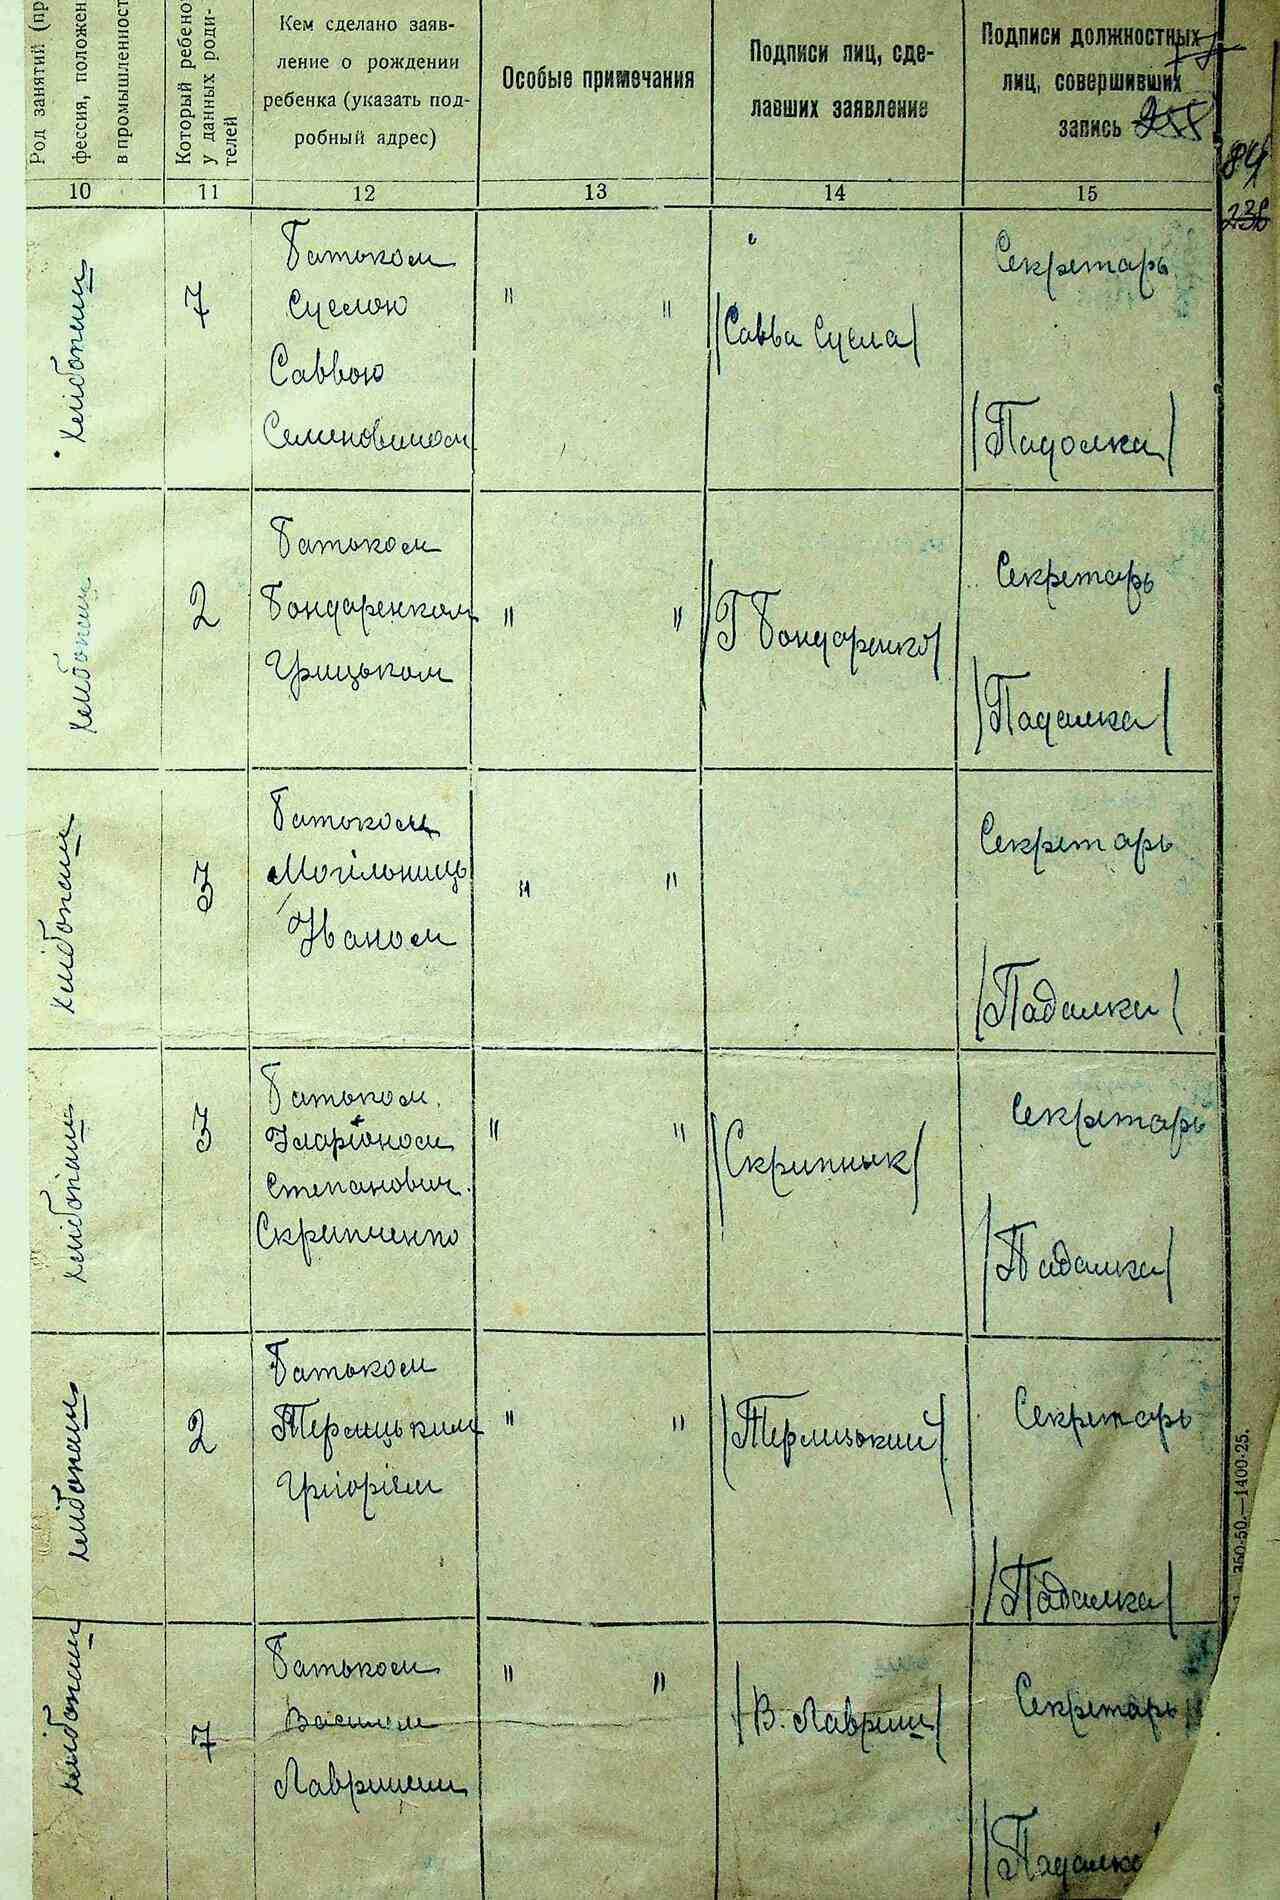 Род занятий (пр
фессия, положен
в промышленност
Который ребено
у данных роди-
телей
Кем сделано заяв-
ление о рождении
ребенка (указать под-
робный адрес)
Особые примечания
Подписи лиц, сде-
лавших заявление
Подписи должностных
лиц, совершивших
запись 255
84
238
10 11 12 13 14 15
хлібопаш
7
Батьком
Суслою
Саввою
Семеновичом
" "
(Савва Сусла)
Секретарь
(Падалка)
хлібопаш
2
Батьком
Бондаренком
Грицьком
" "
(Г Бондаренко)
Секретарь
(Падалка)
хлібопаш
3
Батьком
Могильниць
Іваном
" "
Секретарь
(Падалка)
хлібопаш
3
Батьком
Іларіоном
Степанович.
Скрипченко
" "
(Скрипник)
Секретарь
(Падалка)
хлібопаш
2
Батьком
Терлицьким
Григорієм
" "
(Терлицький)
Секретарь
(Падалка)
350-50.—1400-25.
хлібопаш
7
Батьком
Василем
Лавришем
" "
(В. Лавриш)
Секретарь
(Падалка